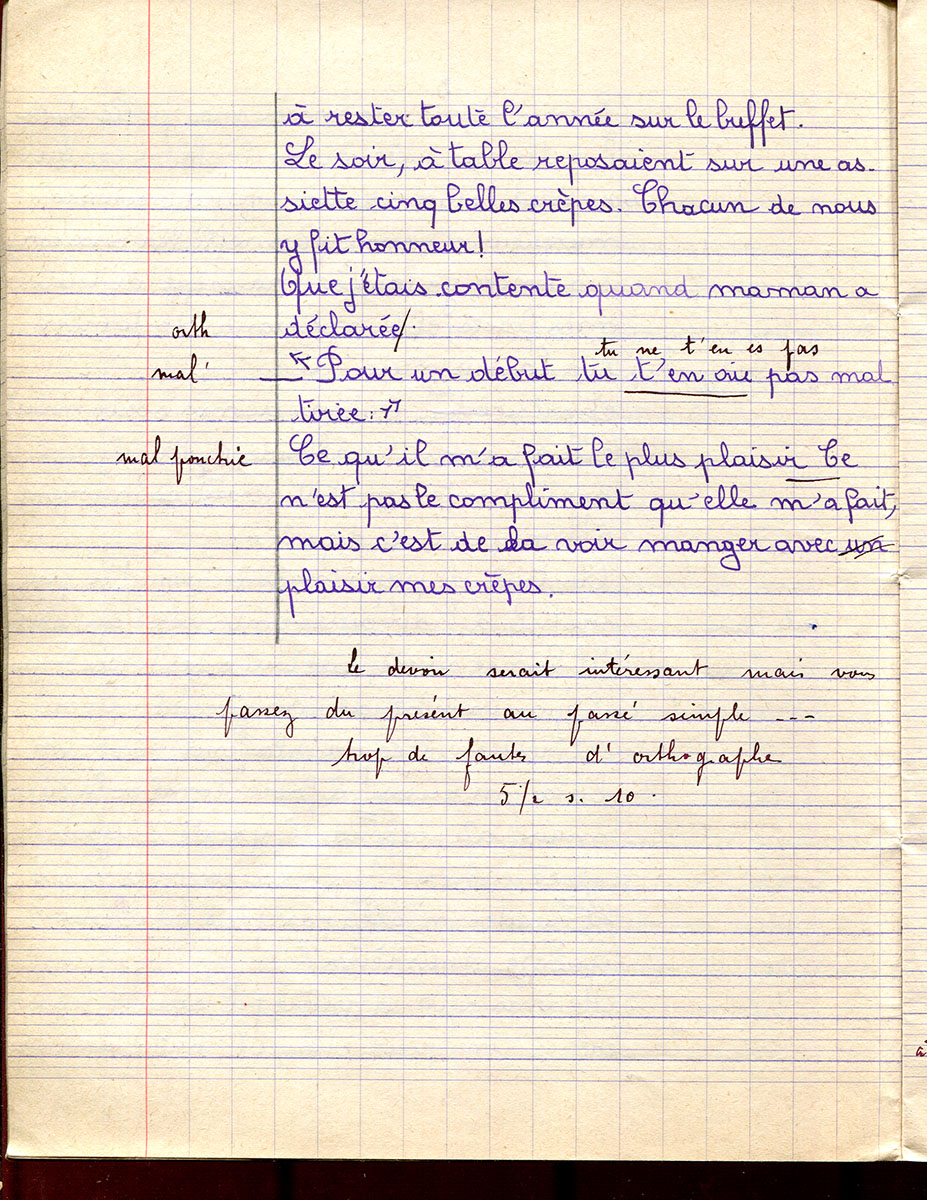 à rester toute l'année sur le buffet.
Le soir, à table reposaient sur une as-
siette cinq belles crèpes. Chacun de nous
y fit honneur!
Que j'étais contente quand maman a
orth déclarée/.
tu ne t'en es pas
mal' — "Pour un début tu t'en ai pas mal
tirée:"
mal ponctué Ce qu'il m'a fait le plus plaisir Ce
n'est pas le compliment qu'elle m'a fait,
mais c'est de la voir manger avec un
plaisir mes crêpes.
le devoir serait intéressant mais vous
passez du présent au passé simple ---
trop de fautes d'orthographe
5 1/2 s. 10.
à